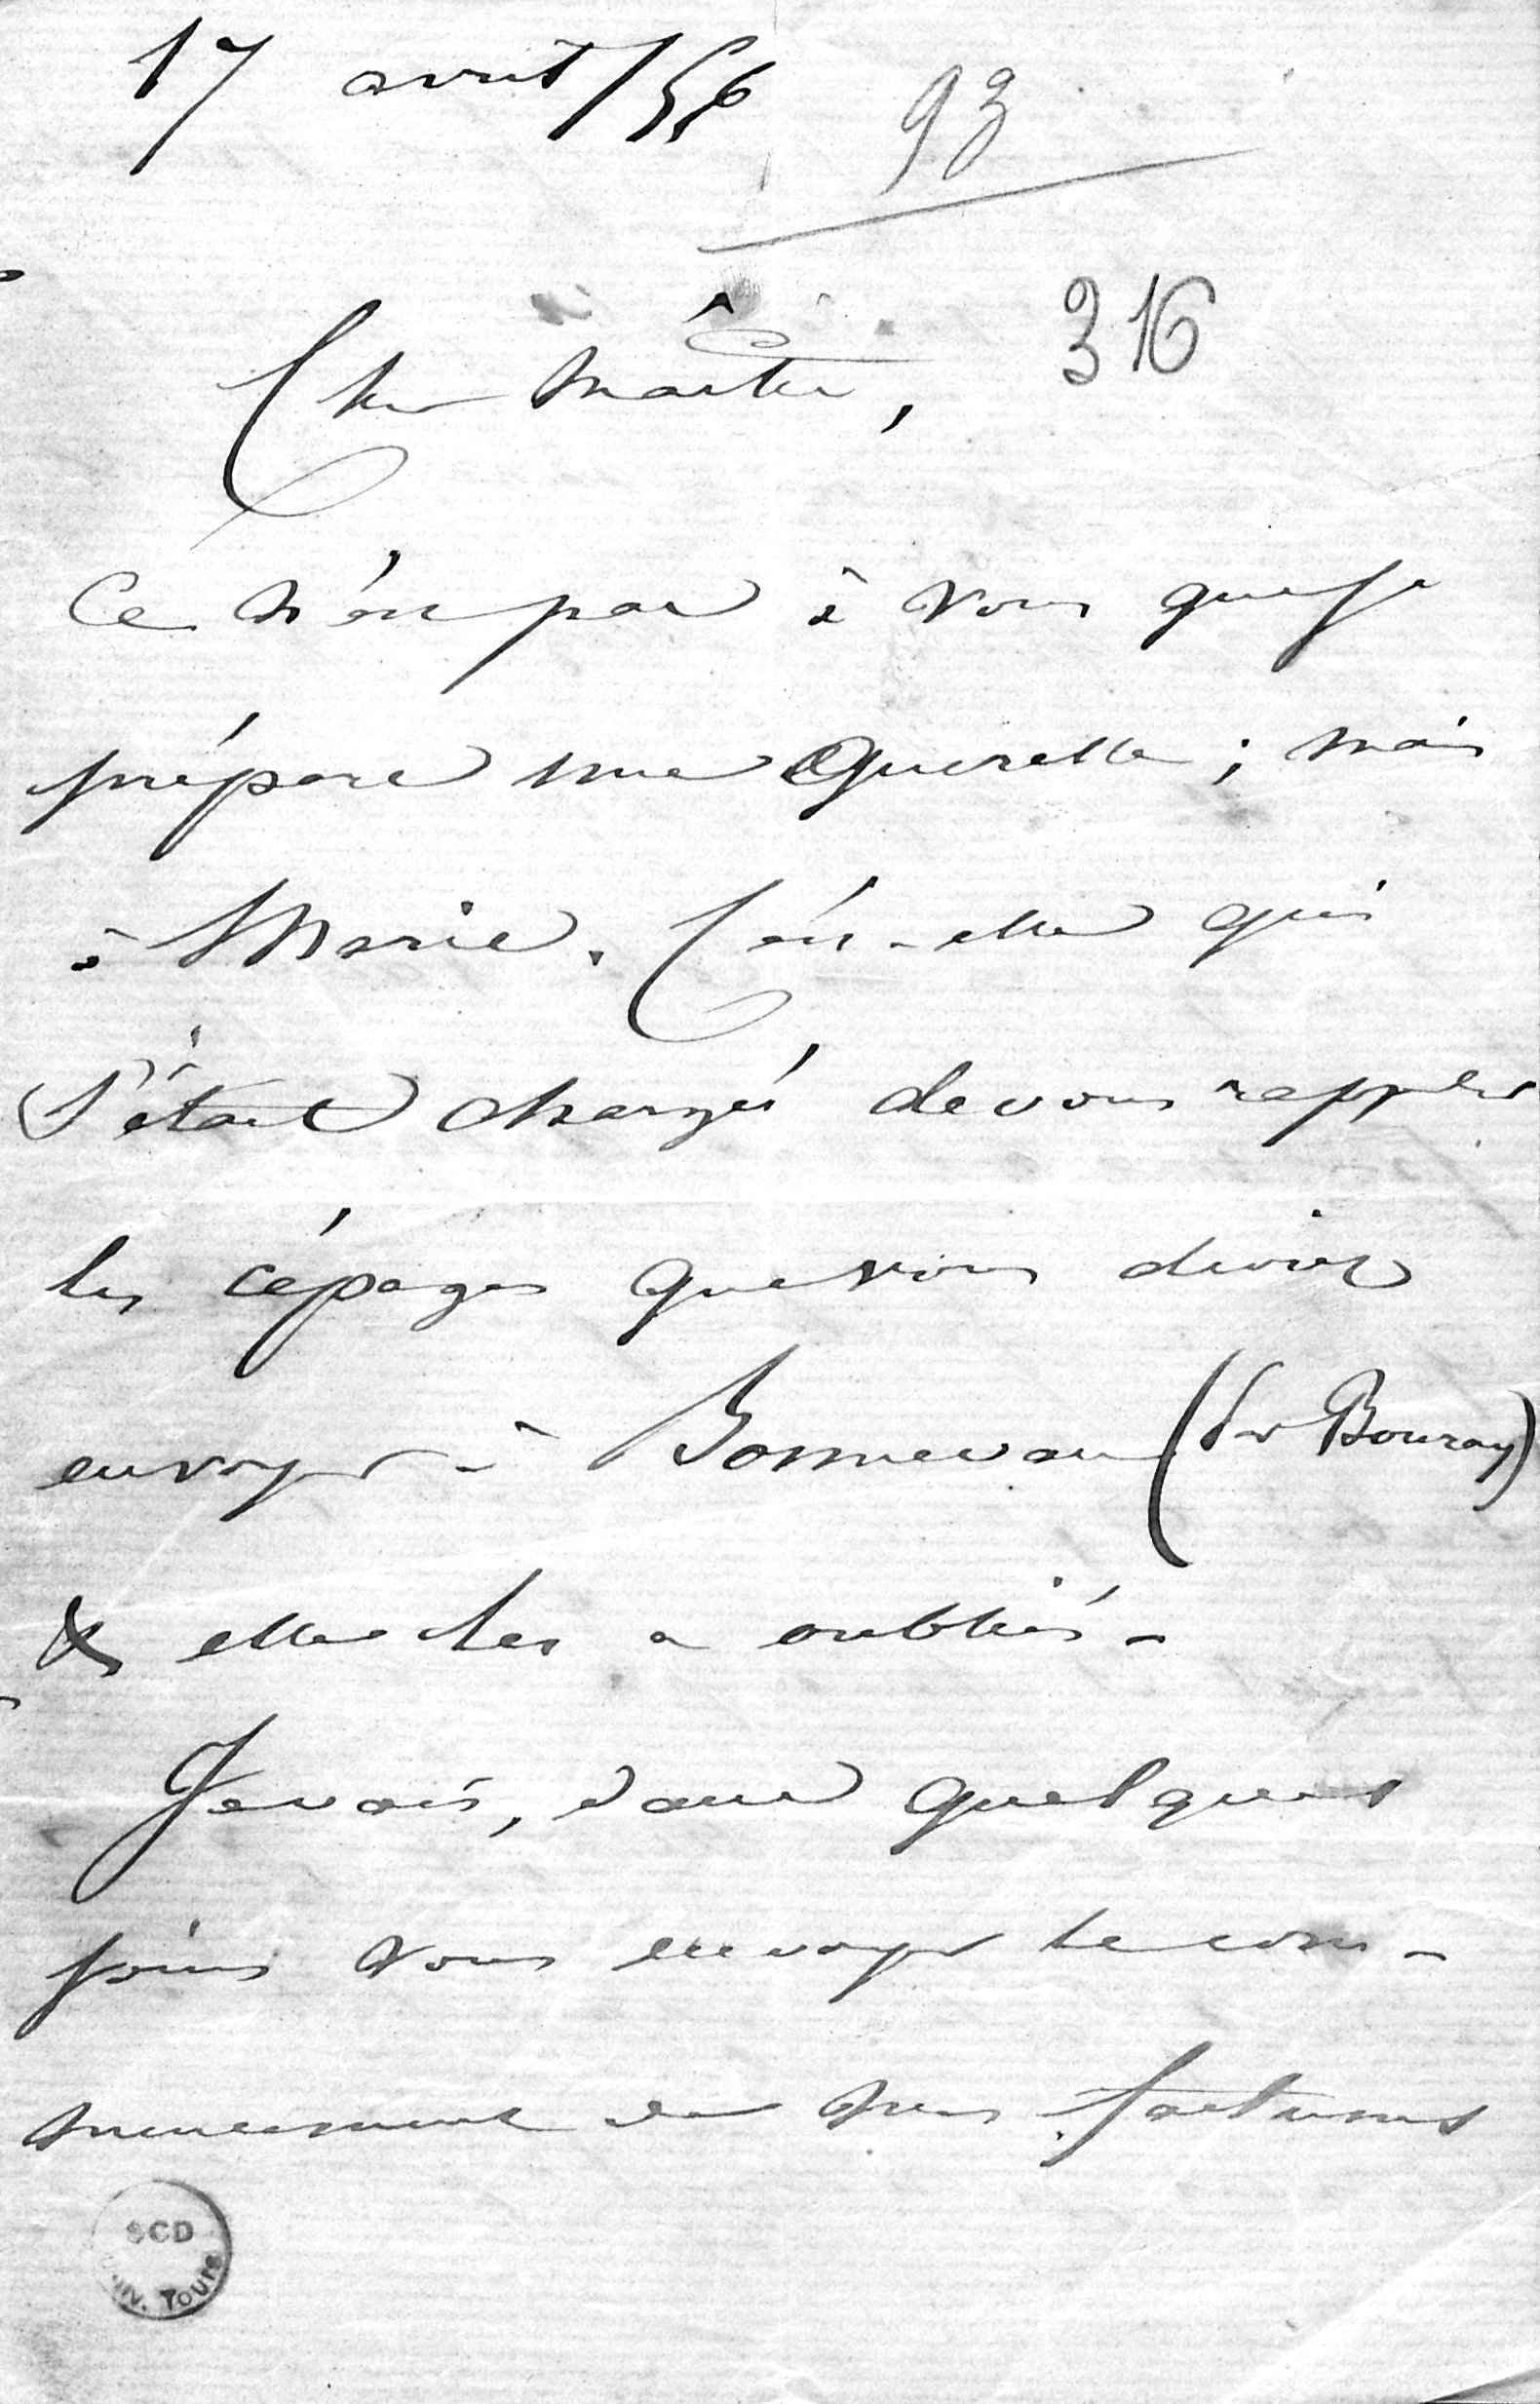 17 avril /56
93
316
Cher Maître,
Ce n'est pas à vous que je
prépare une Querelle ; mais
à Marie. C'est elle qui
s'était chargée de vous rappeler
les cépages que vous deviez
envoyer à Bonneveau (par Bouray)
& elle les a oubliés -
Je vais, dans quelques
jours vous envoyer le com-
mencement de mes factums
SCD
UNIV. TOURS